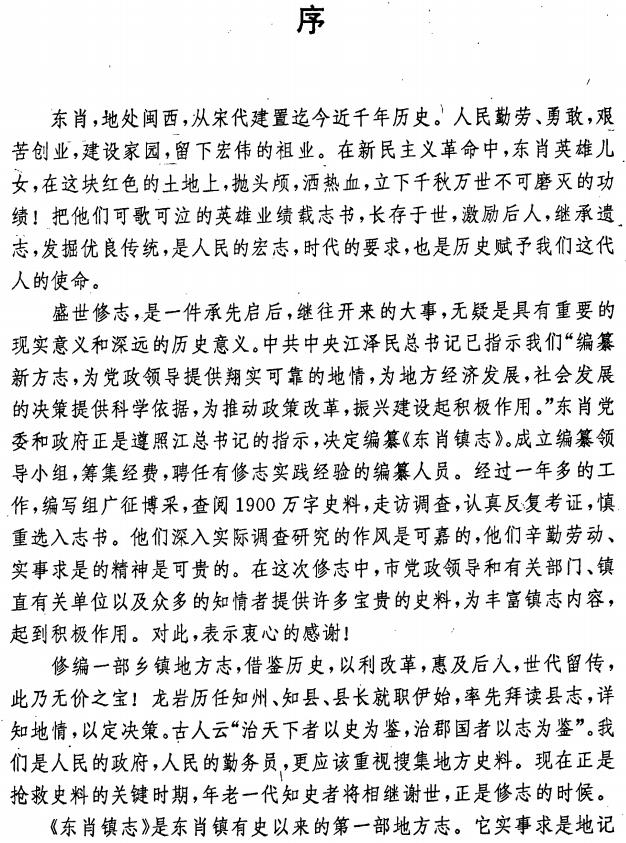 序
东肖，地处闽西，从宋代建置迄今近千年历史。人民勤劳、勇敢，艰
苦创业，建设家园，留下宏伟的祖业。在新民主义革命中，东肖英雄儿
女，在这块红色的土地上，抛头颅，洒热血，立下千秋万世不可磨灭的功
绩！把他们可歌可泣的英雄业绩载志书，长存于世，激励后人，继承遗
志，发掘优良传统，是人民的宏志，时代的要求，也是历史赋予我们这代
人的使命。
盛世修志，是一件承先启后，继往开来的大事，无疑是具有重要的
现实意义和深远的历史意义。中共中央江泽民总书记已指示我们“编纂
新方志，为党政领导提供翔实可靠的地情，为地方经济发展，社会发展
的决策提供科学依据，为推动政策改革，振兴建设起积极作用。”东肖党
委和政府正是遵照江总书记的指示，决定编纂《东肖镇志》。成立编纂领
导小组，筹集经费，聘任有修志实践经验的编纂人员。经过一年多的工
作，编写组广征博采，查阅1900万字史料，走访调查，认真反复考证，慎
重选入志书。他们深入实际调查研究的作风是可嘉的，他们辛勤劳动、
实事求是的精神是可贵的。在这次修志中，市党政领导和有关部门、镇
直有关单位以及众多的知情者提供许多宝贵的史料，为丰富镇志内容，
起到积极作用。对此，表示衷心的感谢！
修编一部乡镇地方志，借鉴历史，以利改革，惠及后人，世代留传，
此乃无价之宝！龙岩历任知州、知县、县长就职伊始，率先拜读县志，详
知地情，以定决策。古人云“治天下者以史为鉴，治郡国者以志为鉴”。我
们是人民的政府，人民的勤务员，更应该重视搜集地方史料。现在正是
抢救史料的关键时期，年老一代知史者将相继谢世，正是修志的时候。
《东肖镇志》是东肖镇有史以来的第一部地方志。它实事求是地记